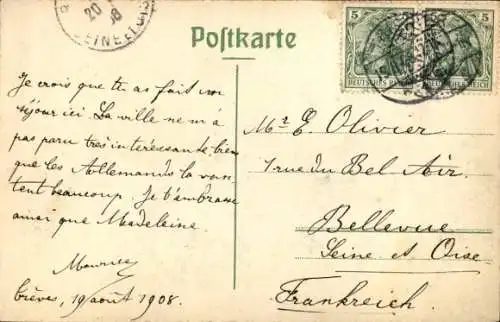 Postkarte
20
8
SEINE ET OISE
5
5
DEUTSCHES REICH
Je crois que tu as fait un
séjour ici. La ville ne m'a
pas paru très intéressante, bien
que les Allemands la van-
tent beaucoup. Je t'embrasse
ainsi que Madeleine.
Maurice
Trèves, 19 août 1908.
Mr E. Olivier
1 rue du Bel Air.
Bellevue
Seine et Oise
Frankreich.